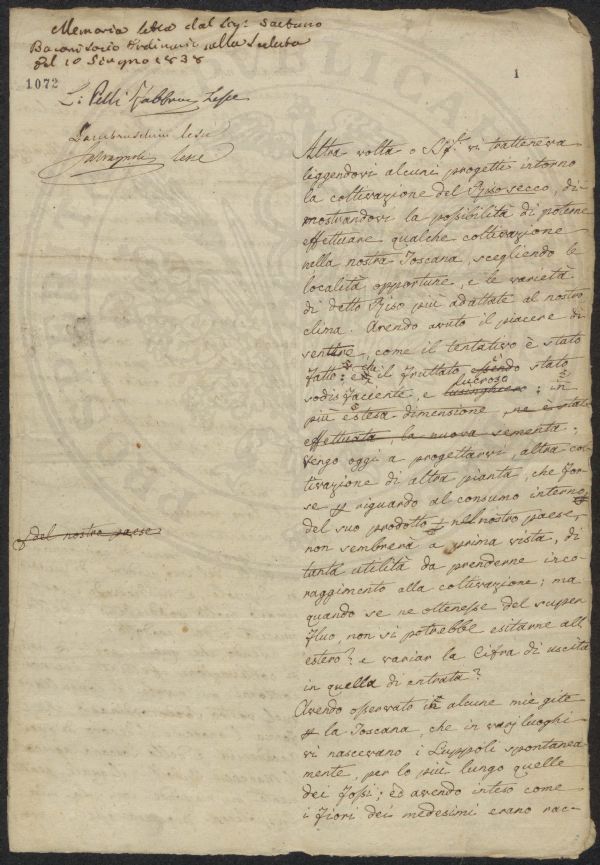 Memoria letta dal Sig.r Gaetano
Baroni Socio Ordinario nella Seduta
del 10 Giugno 1838
1072
1
L: Pelli Fabbroni Lesse
Lambruschini lesse
Salvagnoli lesse
Altra volta o Sig.ri vi tratteneva
leggendovi alcuni progetti intorno
la coltivazione del Riso secco, di-
mostrandovi la possibilità di poterne
effettuare qualche coltivazione
nella nostra Toscana, scegliendo le
località opportune, e le varietà
di detto Riso più adattate al nostro
clima. Avendo avuto il piacere di
sentire, come il tentativo è stato
fatto: che il fruttato è stato
sodisfacente, e lusinghiero lucroso: in
più estesa dimensione, ne è stata
effettuata, la nuova sementa.
Vengo oggi a progettarvi, altra col-
tivazione di altra pianta, che for-
se p riguardo al consumo interno
del suo prodotto nel nostro paese,
del nostro paese
non sembrerà a prima vista, di
tanta utilità da prenderne inco-
raggimento alla coltivazione; ma
quando se ne ottenesse del super
fluo, non si potrebbe esitarne all
estero? e variar la Cifra di uscita
in quella di entrata?
Avendo osservato in alcune mie gite
p la Toscana, che in varj luoghi
vi nascevano i Luppoli spontanea
mente, per lo più lungo quelle
dei Fossi; ed avendo inteso come
i Fiori dei medesimi erano rac-